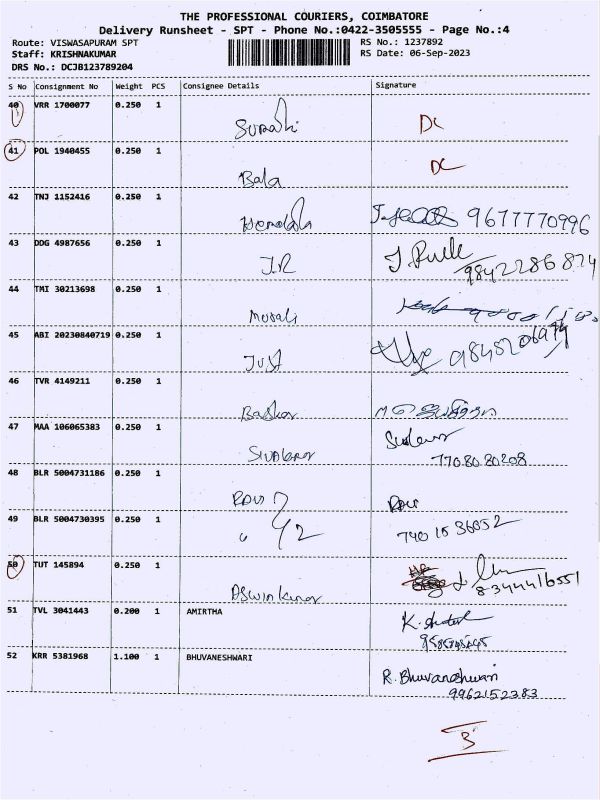 THE PROFESSIONAL COURIERS, COIMBATORE
Delivery Runsheet - SPT - Phone No.:0422-3505555 - Page No.:4
Route: VISWASAPURAM SPT
RS No.: 1237892
Staff: KRISHNAKUMAR
RS Date: 06-Sep-2023
DRS No.: DCJB123789204
S No Consignment No Weight PCS Consignee Details Signature
40 VRR 1700077 0.250 1
DC
41 POL 1940455 0.250 1
DC
Bala
42 TNJ 1152416 0.250 1
9677770996
43 DDG 4987656 0.250 1
J.R
9842286874
44 TMI 30213698 0.250 1
Murali
45 ABI 20230840719 0.250 1
Just
46 TVR 4149211 0.250 1
Baskar
47 MAA 106065383 0.250 1
7708080208
48 BLR 5004731186 0.250 1
Ravi
Ravi
49 BLR 5004730395 0.250 1
50 TUT 145894 0.250 1
Aswin kumar
8344416551
51 TVL 3041443 0.200 1 AMIRTHA
52 KRR 5381968 1.100 1 BHUVANESHWARI
R. Bhuvaneshwari
9962152383